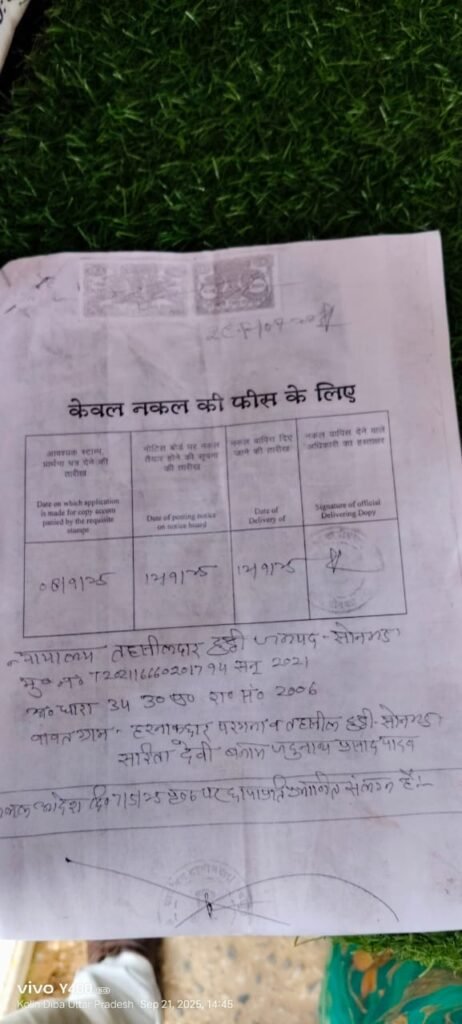 केवल नकल की फीस के लिए
आवश्यक स्टाम्प
प्रार्थना पत्र देने की
तारीख
Date on which application
is made for copy accom
panied by the requisite
stamps
नोटिस बोर्ड पर नकल
तैयार होने की सूचना
की तारीख
Date of posting notice
on notice board
नकल वापिस दिए
जाने की तारीख
Date of
Delivery of
नकल वापिस देने वाले
अधिकारी का हस्ताक्षर
Signature of official
Delivering Dopy
08/9/25
12/9/25
12/9/25
न्यायालय तहसीलदार दुद्धी जनपद - सोनभद्र
मु० नं० T202116660201794 सन् 2021
अ० धारा 34 उ० प्र० रा० सं० 2006
बावत ग्राम - हरनाकछार परगना व तहसील दुद्धी - सोनभद्र
सरिता देवी बनाम जदुनाथ प्रसाद यादव
नकल आदेश दि० 7/5/25
संलग्न है।-
vivo Y400
Kolin Diba Uttar Pradesh Sep 21, 2025, 14:45